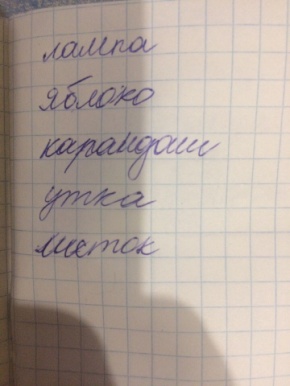 лампа
яблоко
карандаш
утка
листок